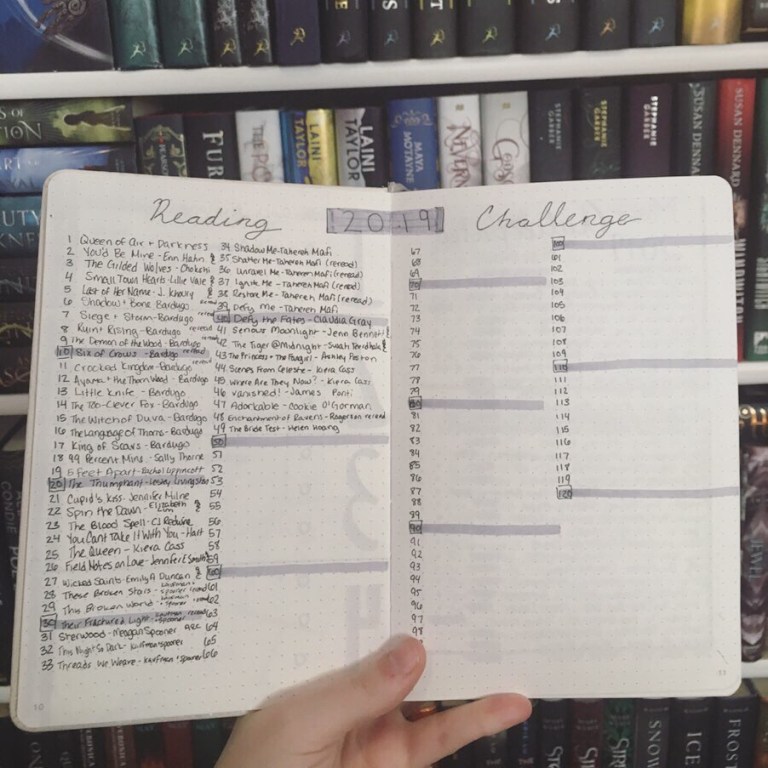 Reading 2019 Challenge
1 Queen of Air + Darkness
2 You'd Be Mine - Erin Hahn
3 The Gilded Wolves - Chokshi
4 Small Town Hearts - Lillie Vale
5 Last of Her Name - J. Khoury
6 Shadow + Bone Bardugo reread
7 Siege + Storm - Bardugo reread
8 Ruin + Rising - Bardugo reread
9 The Demon of the Wood - Bardugo
10 Six of Crows - Bardugo reread
11 Crooked Kingdom - Bardugo
12 Ayama + the Thorn Wood - Bardugo
13 Little Knife - Bardugo
14 The Too-Clever Fox - Bardugo
15 The Witch of Duva - Bardugo
16 The Language of Thorns - Bardugo
17 King of Scars - Bardugo
18 99 Percent Mine - Sally Thorne
19 5 Feet Apart - Rachel Lippincott
20 The Triumphant - Lesley Livingston
21 Cupid's Kiss - Jennifer Milne
22 Spin the Dawn - Elizabeth Lim
23 The Blood Spell - CJ Redwine
24 You Cant Take It With You - Hart
25 The Queen - Kiera Cass
26 Field Notes on Love - Jennifer E Smith
27 Wicked Saints - Emily A Duncan
28 These Broken Stars - Kaufman + Spooner reread
29 This Broken World - Kaufman + Spooner reread
30 Their Fractured Light - Kaufman + Spooner reread
31 Sherwood - Meagan Spooner arc
32 This Night So Dark - Kaufman + Spooner
33 Threads We Weave - Kaufman + Spooner
34 Shadow Me - Tahereh Mafi
35 Shatter Me - Tahereh Mafi (reread)
36 Unravel Me - Tahereh Mafi (reread)
37 Ignite Me - Tahereh Mafi (reread)
38 Restore Me - Tahereh Mafi (reread)
39 Defy Me - Tahereh Mafi
40 Defy the Fates - Claudia Gray
41 Serious Moonlight - Jenn Bennett
42 The Tiger @ Midnight - Swati Teerdhala
43 The Princess + the Fangirl - Ashley Poston
44 Scenes From Celeste - Kiera Cass
45 Where Are They Now? - Kiera Cass
46 Vanished! - James Ponti
47 Adorkable - Cookie O'Gorman
48 Enchantment of Ravens - Rogerson reread
49 The Bride Test - Helen Hoang
50
51
52
53
54
55
56
57
58
59
60
61
62
63
64
65
66
67
68
69
70
71
72
73
74
75
76
77
78
79
80
81
82
83
84
85
86
87
88
89
90
91
92
93
94
95
96
97
98
100
101
102
103
104
105
106
107
108
109
110
111
112
113
114
115
116
117
118
119
120
10
11
FUR
LAINI TAYLOR
LAINI TAYLOR
MAYA MOTAYNE
STEPHANIE GARBER
STEPHANIE GARBER
STEPHANIE
SUSAN DENNARD
SUSAN DENNARD
SNOW
ICE
FROST